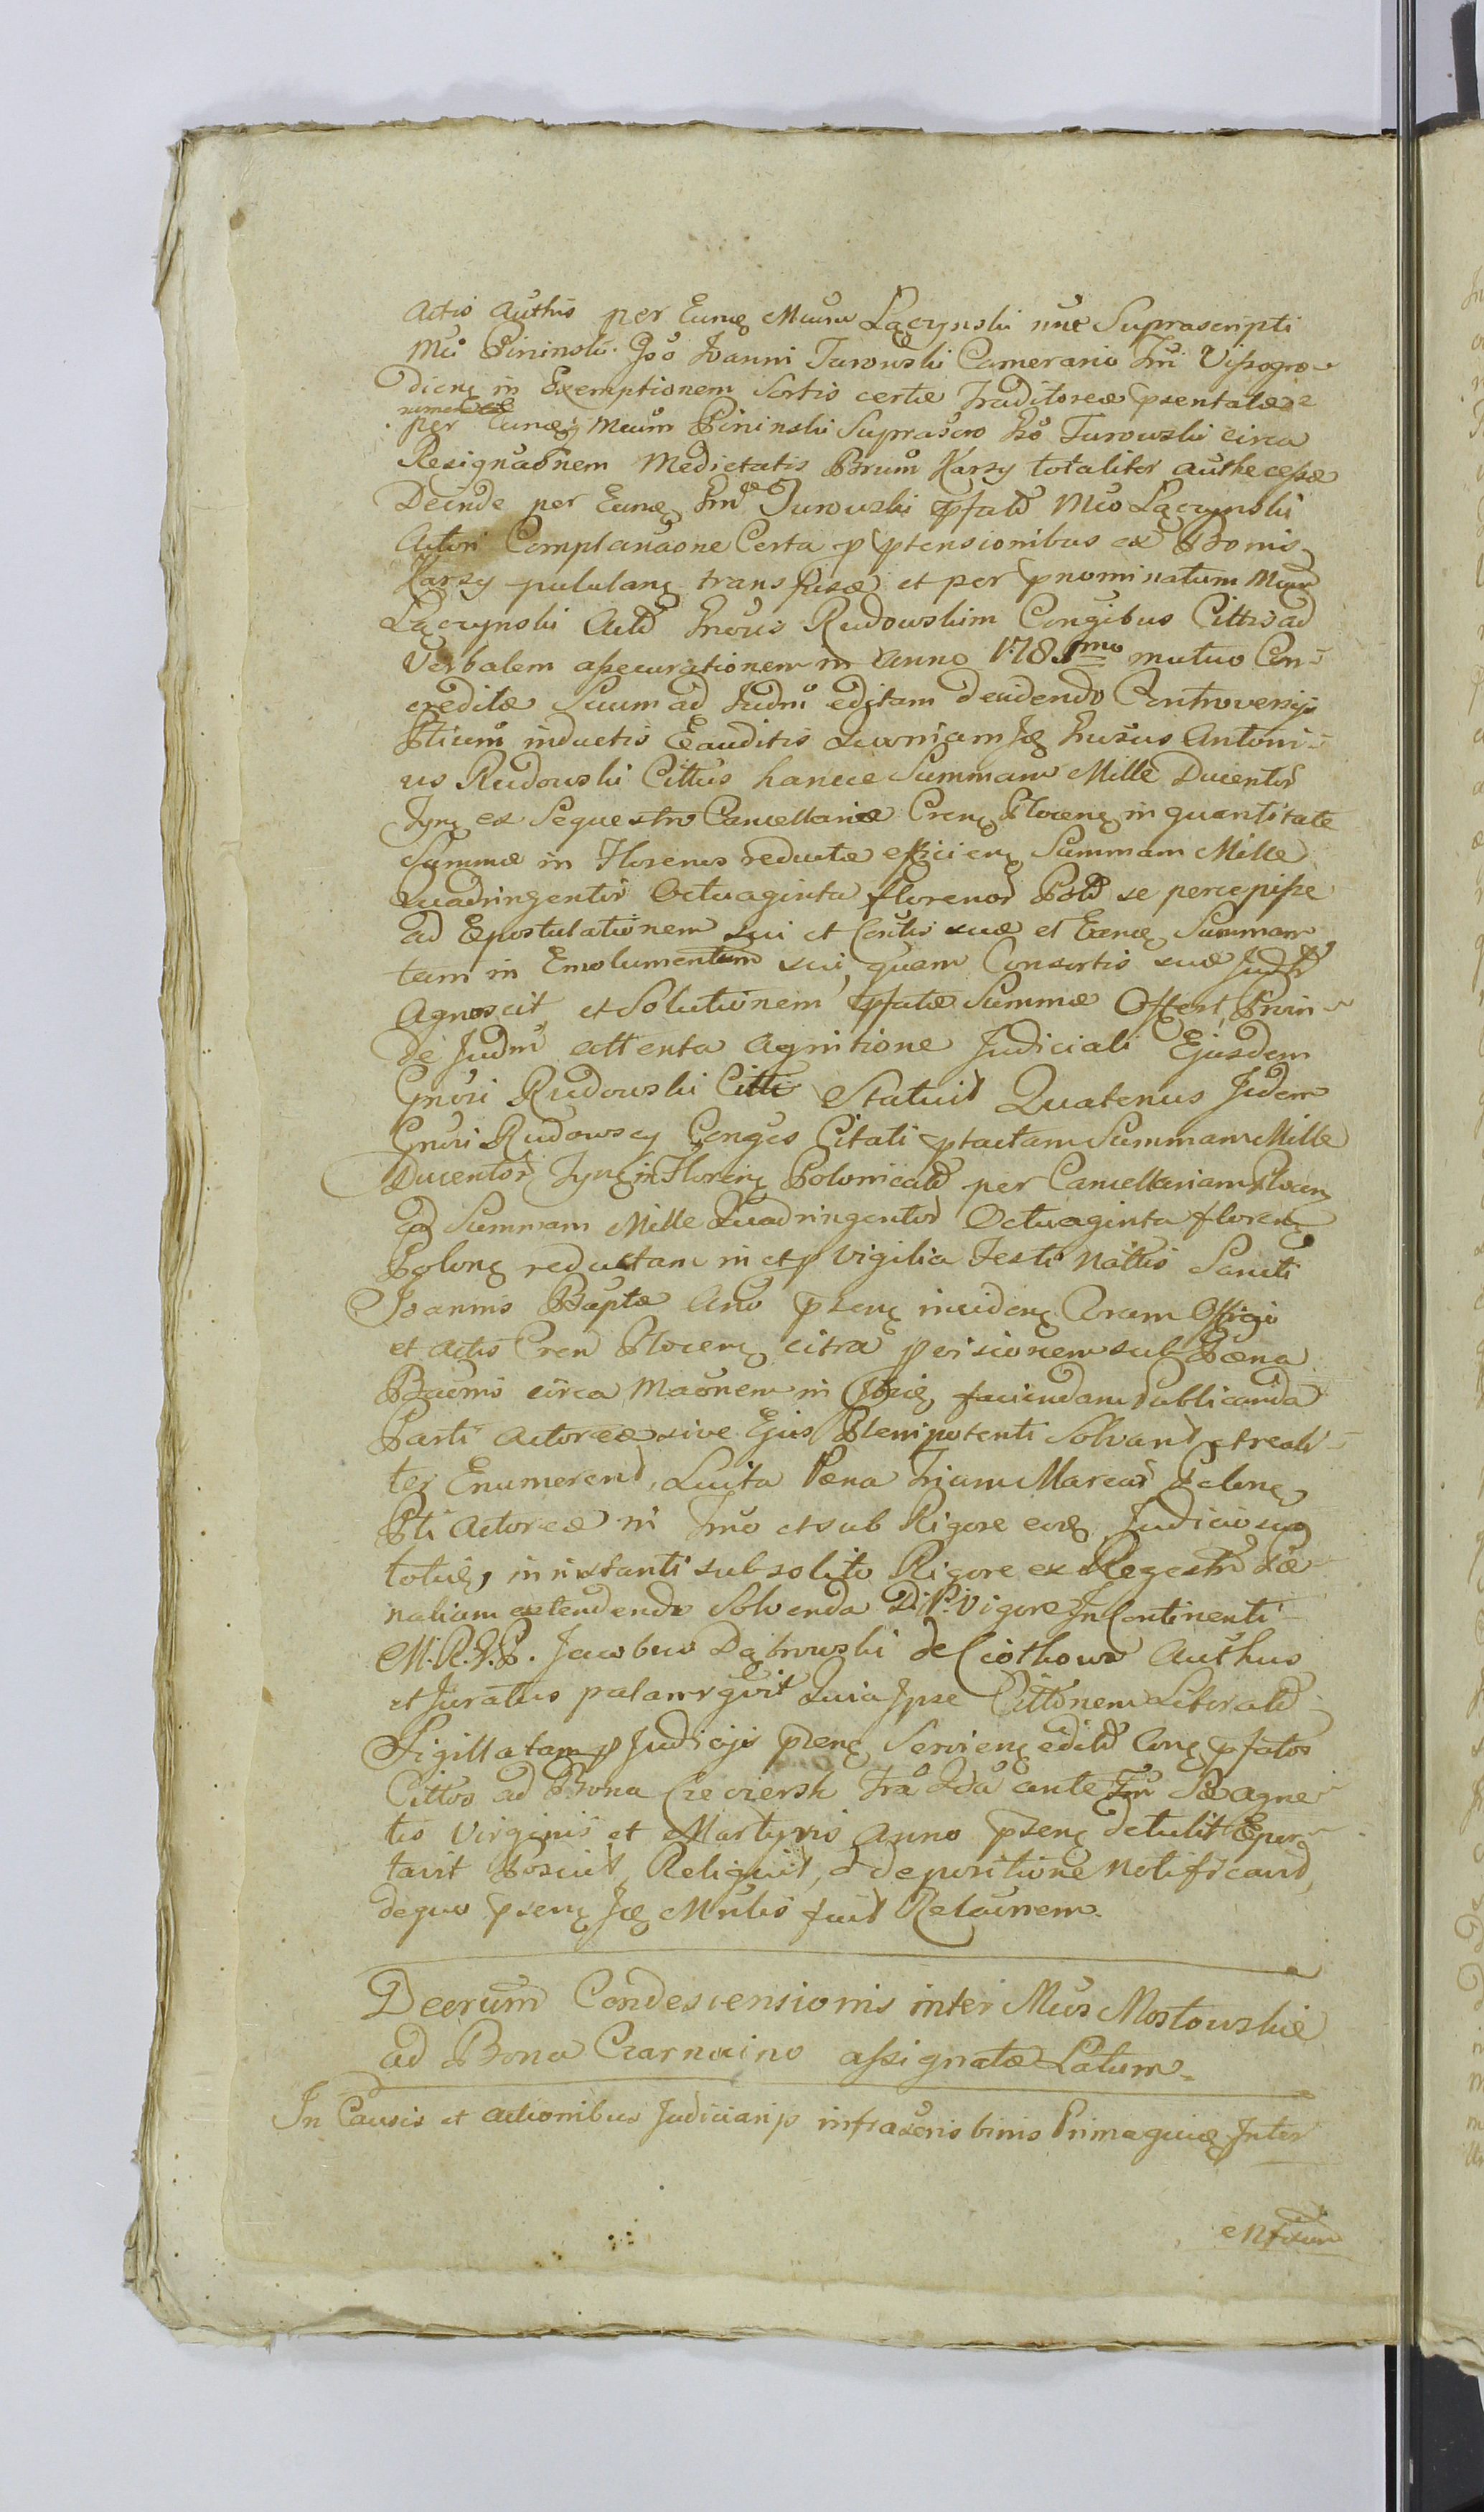 Actis Authis per Eundę Mcum Łączynski nunc Suprascripti
Mci Pininski. Gso Joanni Turowski Camerario Tri Vissogro-
dienę in Exemptionem Sortis certæ Traditoreæ psentatæ
per Eundę Mcum Pininski Suprascro Gso Turowski circa
Resignaonem Medietatis Bonrum Karsy totaliter authecessæ
Deinde per Eunę Turowski pfato Mco Łączynski
Actori Complanaone Certa p ptensionibus ex Bonis
Karsy pululanę transfusæ et per pnominatum Mcum
Łączynski Gnosis Rudowskim Congibus Cittis ad
Verbalem assecurationem in Anno 1785mo mutuo Con-
creditæ Suum ad Judm editam decidendo Controversijs
Ptium inductis Exauditis Quoniam Ję Antoni-
us Rudowski Cittus hancce Summam Mille Ducentor
Tynę ex Sequestro Cancellariæ Crenę Plocenę in quantitate
Summæ in Florenos reductæ efficienę Summam Mille
Quadringentor Octuaginta florenor Pold se percepisse
ad Epostulationem sui et Contis suæ et Eandę Summam
tam in Emolumentum sui, quam Consortis suæ Judr
Agnoscit, et Solutionem pfatæ Summæ Offert, Proin-
de Judm attenta Agnitione Judiciali Ejusdem
Gnosi Rudowski Citti Statuit Quatenus Jidem
Gnosi Rudowscy Conges Citati ptactam Summam Mille
Ducentor Tynę in Florenę Polonicald per Cancellariam Plocenę
ad Summam Mille Quadringentor Octuaginta florenę
Polonę reductam in et p Vigilia Festi Nattis Sancti
Joannis Baptæ Ano psenę incidenę Coram Officio
et Actis Cren Plocenę citra sub Pæna
Bacnis circa Maonem in faciendam Publicanda
Parti Actoreæ sive Ejus Plenipotenti Solvant et reali-
ter Enumerent, Luita Pæna Trium Marcar Polonę
Pti Actoreæ in Tmo et sub Rigore eodę Judicio suo
toties, in instanti sub solito Rigore ex Regestr Pæ-
nalium extendendo Solvenda D: P: Vigore In Continenti
M. R. J. P. Jacobus Dąbrowski de Ciołkowo Authus
et Juratus palam rgvit Quia Jpse Cittonem Literald
Sigillatam p Judicijs psenę Servienę editd Conę pfatos
Cittos ad Bona Czewiersk Tra Qda ante Fm Sæ Agne-
tis Virginis et Martyris Anno psenę detulit Epor-
tavit Posuit, Reliquit, d depositione Notificavit,
de quo psenę Ję Mnlis fuit Relaonem.
Decrum Condescensionis inter Mcos Mostowskie
ad Bona Czarnocino assignatæ Latum.
In Causis et Actionibus Judiciarijs infrascris binis Primaque Inter